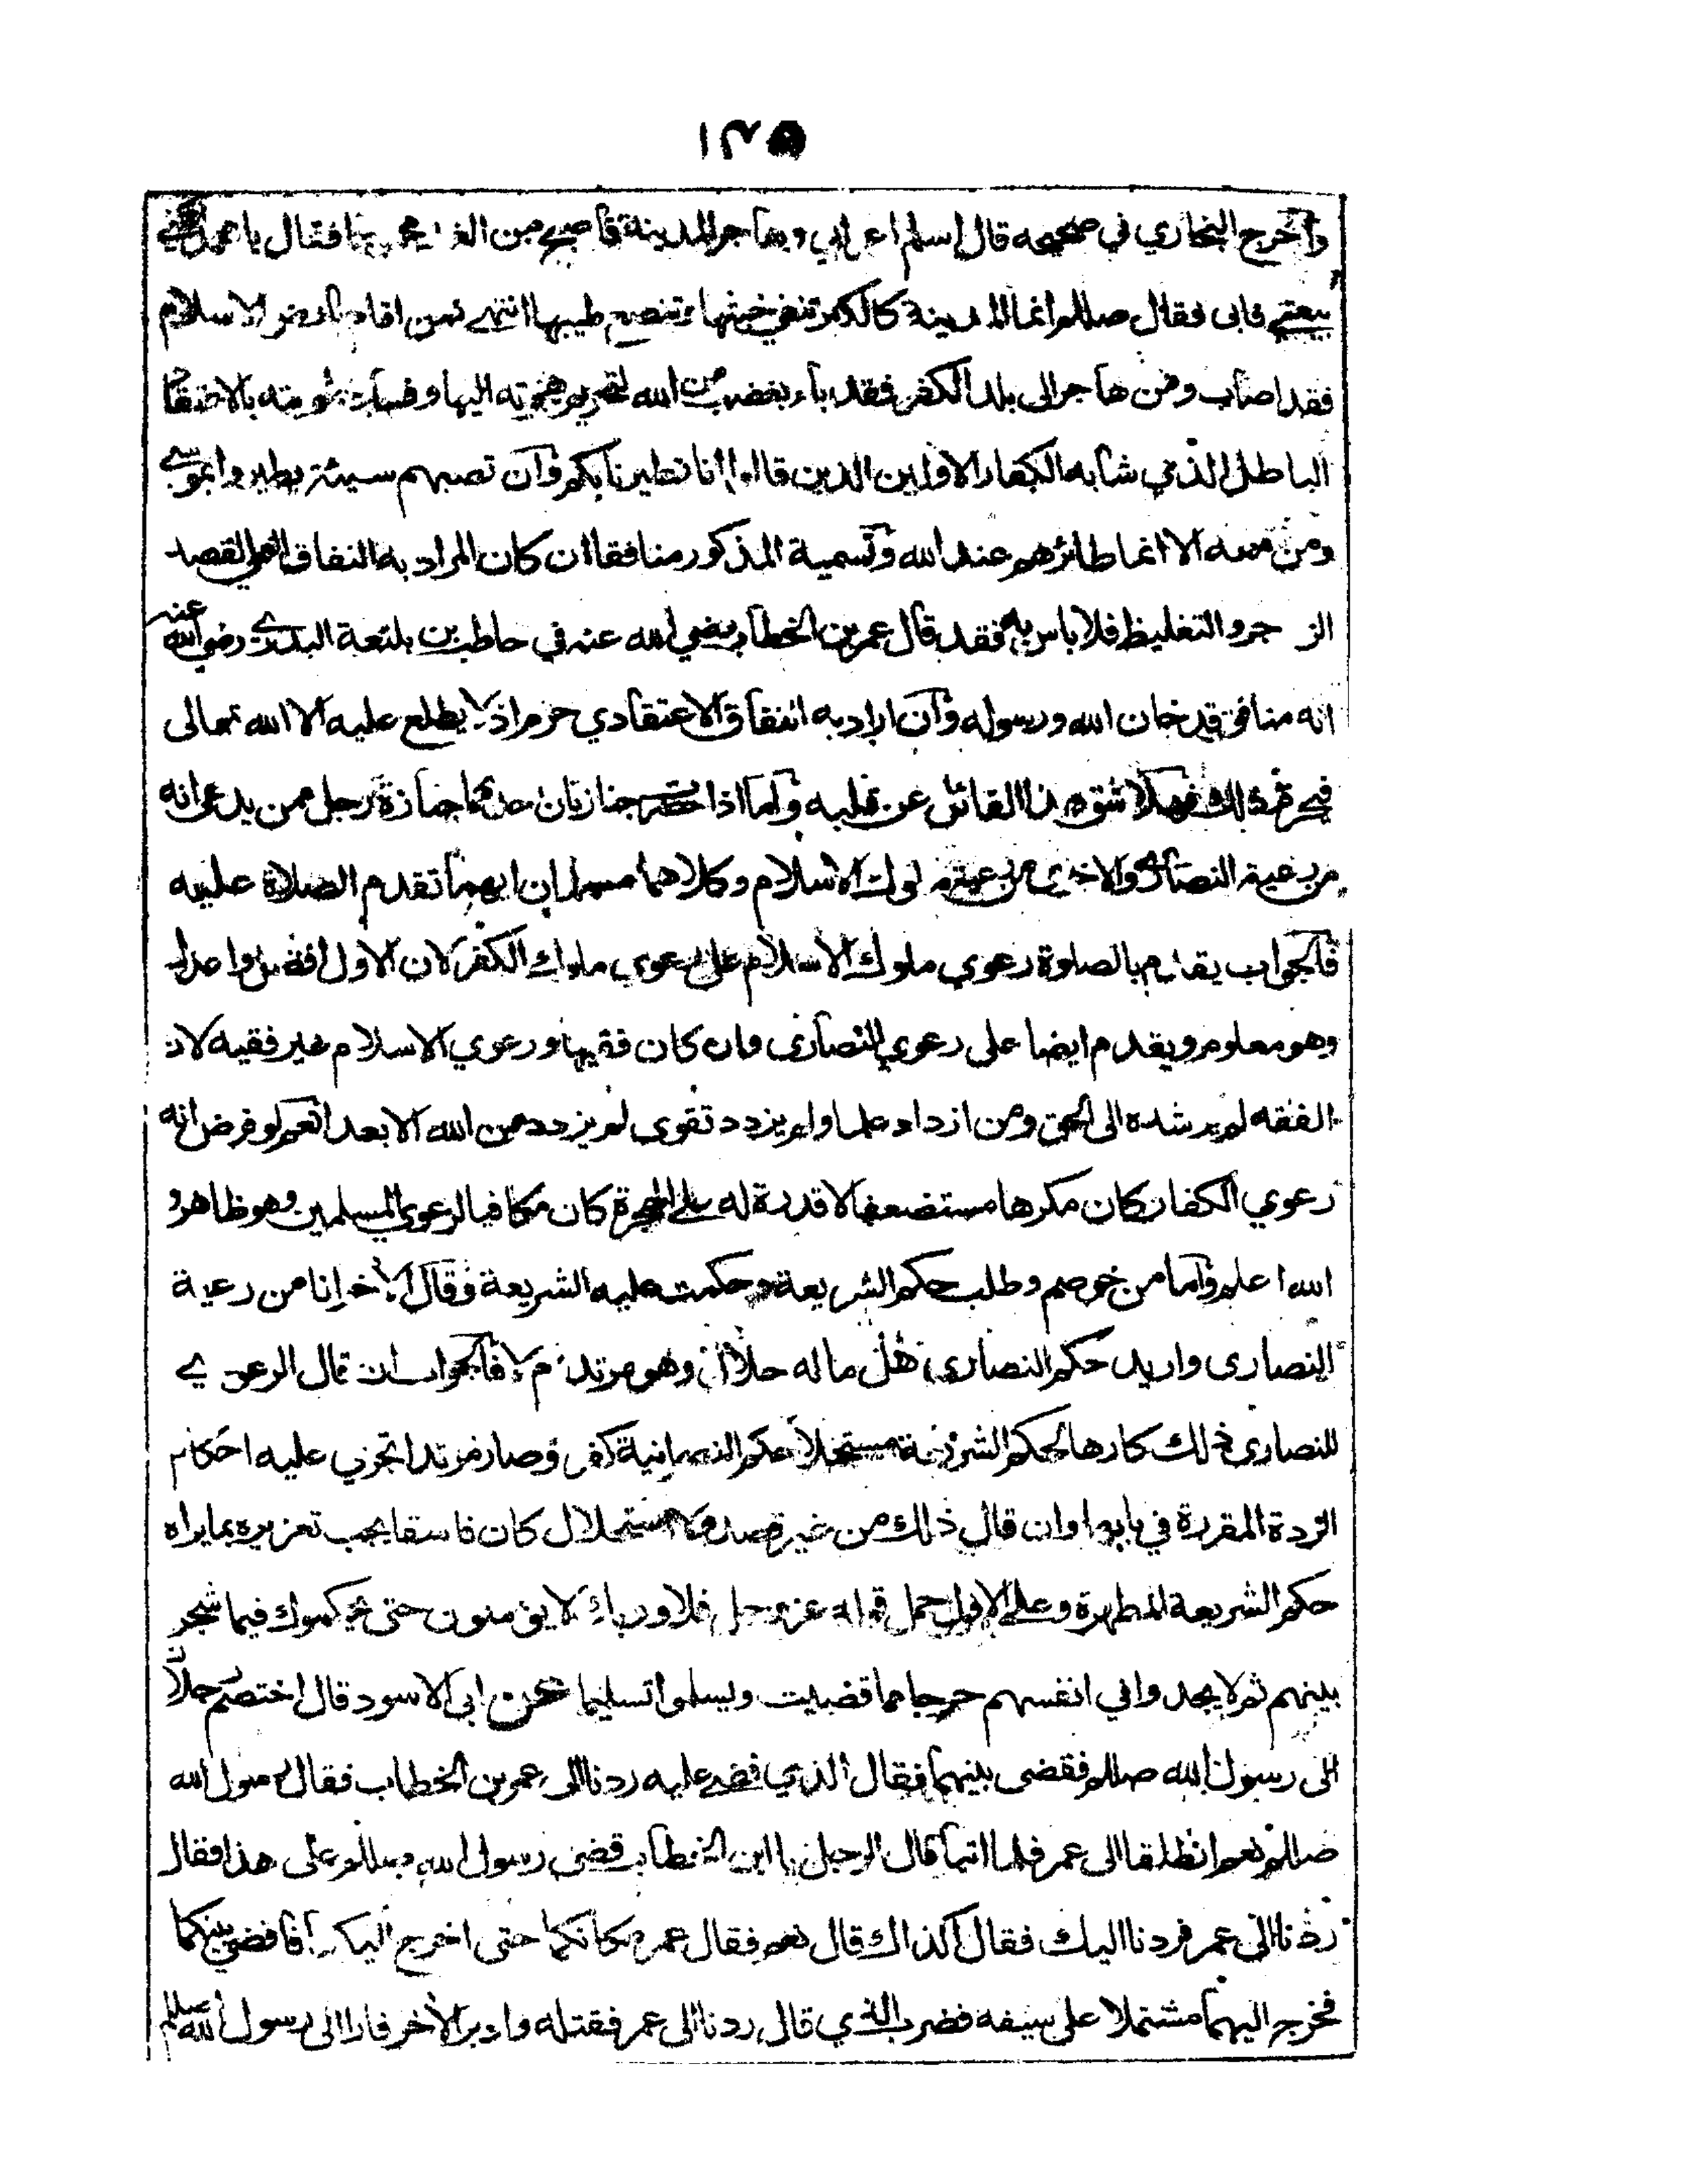 واخرج البخاري في صحيحه قال اسلم اعرابي وهاجر المدينة فاصبح من الغد محموما فقال يا محمد اقلني
بيعتي فابى فقال صللم انما المدينة كالكير تنفي خبثها وتنصع طيبها انتهى فمن اقام بارض الاسلام
فقد اصاب ومن هاجر الى بلد الكفر فقد باء بغضب من الله لتحريم هجرته اليها وفساد بالاعتقاد
الباطل الذي شابه الكفار الاولين الذين قالوا انا تطيرنا بكم وان تصبهم سيئة يطيروا بموسى
ومن معه الا انما طائرهم عند الله وتسمية المذكور منافقا ان كان المراد به النفاق القصد
الزجر والتغليظ فلا باس به فقد قال عمر بن الخطاب رضي الله عنه في حاطب بن بلتعة البدري رضي الله عنه
انه منافق قد خان الله ورسوله وان اراد به النفاق الاعتقادي حرم اذ لا يطلع عليه الا الله تعالى
فيحرم ذلك فهلا شق هذا القائل عن قلبه واما اذا حضر جنازتان احدهما جنازة رجل ممن يدعى انه
من رعية النصارى والاخرى من رعية ملوك الاسلام وكلاهما مسلمان ايهما تقدم الصلاة عليه
فالجواب يقدم بالصلوة رعوي ملوك الاسلام على رعوي ملوك الكفر لان الاول افضل
وهو معلوم ويقدم ايضا على رعوي النصارى وان كان فقيها ورعوي الاسلام غير فقيه لان
الفقه لم يرشده الى الحق ومن ازداد علما ولم يزدد تقوى لم يزدد من الله الا بعدا نعم لو فرض انه
رعوي الكفار كان مكرها مستضعفا لا قدرة له على الهجرة كان مكافيا لرعوي المسلمين وهو ظاهر و
الله اعلم واما من خوصم وطلب حكم الشريعة وحكمت عليه الشريعة وقال الاخر انا من رعية
النصارى واريد حكم النصارى هل ماله حلال وهو مرتد ام لا فالجواب ان قال الرعوي
للنصارى ذلك كارها لحكم الشريعة مستحلا حكم النصرانية كفر وصار مرتدا تجري عليه احكام
الردة المقررة في بابها وان قال ذلك من غير قصد ولا استحلال كان فاسقا يجب تعزيره بما يراه
حكم الشريعة المطهرة وعلى الاول حمل قوله عز وجل فلا وربك لا يؤمنون حتى يحكموك فيما شجر
بينهم ثم لا يجدوا في انفسهم حرجا مما قضيت ويسلموا تسليما عن ابي الاسود قال اختصم رجلان
الى رسول الله صللم فقضى بينهما فقال الذي قضي عليه ردنا الى عمر بن الخطاب فقال رسول الله
صللم نعم انطلقا الى عمر فلما اتيا قال الرجل يا ابن الخطاب قضى رسول الله صللم على هذا فقال
ردنا الى عمر فردنا اليك فقال اكذاك قال نعم فقال عمر مكانكما حتى اخرج اليكما فاقضي بينكما
فخرج اليهما مشتملا على سيفه فضرب الذي قال ردنا الى عمر فقتله وادبر الآخر فارا الى رسول الله صللم